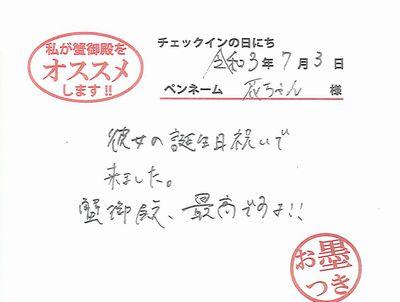 私が蟹御殿を
オススメ
します!!
チェックインの日にち
令和3年7月3日
ペンネーム 様
彼女の誕生日祝いで
来ました。
蟹御殿、最高ですよ!!
お墨
つき